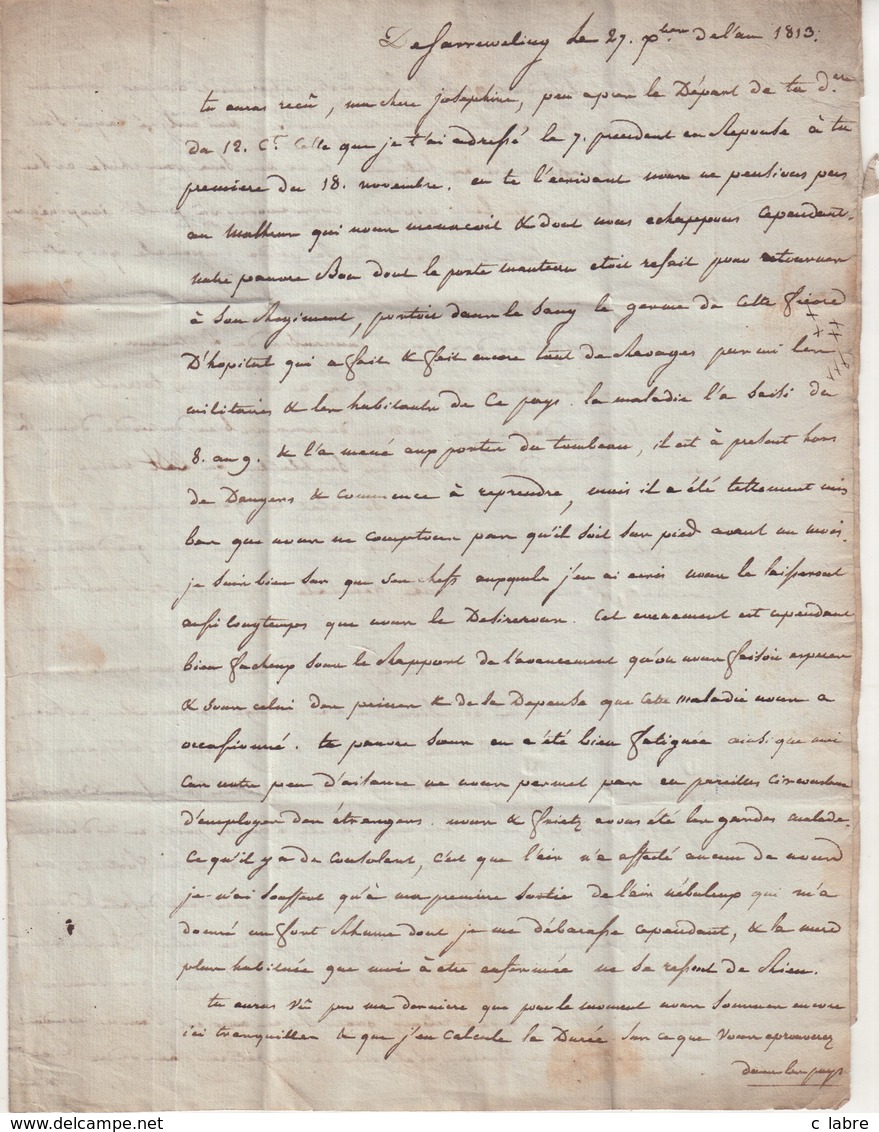 De Sarreweling le 27. xbre de l'an 1813.
tu auras reçû, ma chere josephine, peu après le Départ de ta dre
du 12. Ct. Celle que je t'ai adressé le 7. precedent en Reponse à ta
premiere du 18. novembre. en te l'ecrivant nous ne pensions pas
au Malheur qui nous menacoit & dont nous echappons Cependant.
notre pauvre Bon dont le porte manteau etoit refait pour retourner
à Son Regiment, portoit dans le Sang le germe de Cette fievre
D'hopital qui a fait & fait encore tant de Ravages parmi les
militaires & les habitants de Ce pays. la maladie l'a Saisi du
8. au 9. & l'a mené aux portes du tombeau, il est à present hors
de Dangers & commence à reprendre, mais il a été tellement mis
bas que nous ne comptons pas qu'il soit sur pied avant un mois.
je suis bien sur que Ses chefs auxquels j'en ai ecris nous le laisseront
aussi longtemps que nous le Desirerons. Cet evenement est cependant
bien facheux sous le Rapport de l'avancement qu'on nous faisoit esperer
& sous celui des peines & de la Depense que Cette Maladie nous a
occasionné. ta pauvre Sœur en a été bien fatiguée ainsi que moi
Car notre peu d'aisance ne nous permet pas en pareilles Circonstances
d'employer des étrangers. nous & frietz avons été les gardes malade.
Ce qu'il y a de Consolant, c'est que l'air n'a affecté aucun de nous
je n'ai souffert qu'à ma premiere Sortie de l'air nébuleux qui m'a
donné un fort Rhume dont je me débarasse cependant, & la
plus habituée que moi à etre enfermée ne se ressent de Rien.
tu auras vû par ma derniere que pour le moment nous Sommes encore
ici tranquilles & que j'en Calcule la Durée sur ce que vous eprouverez
dans les pays
c labre